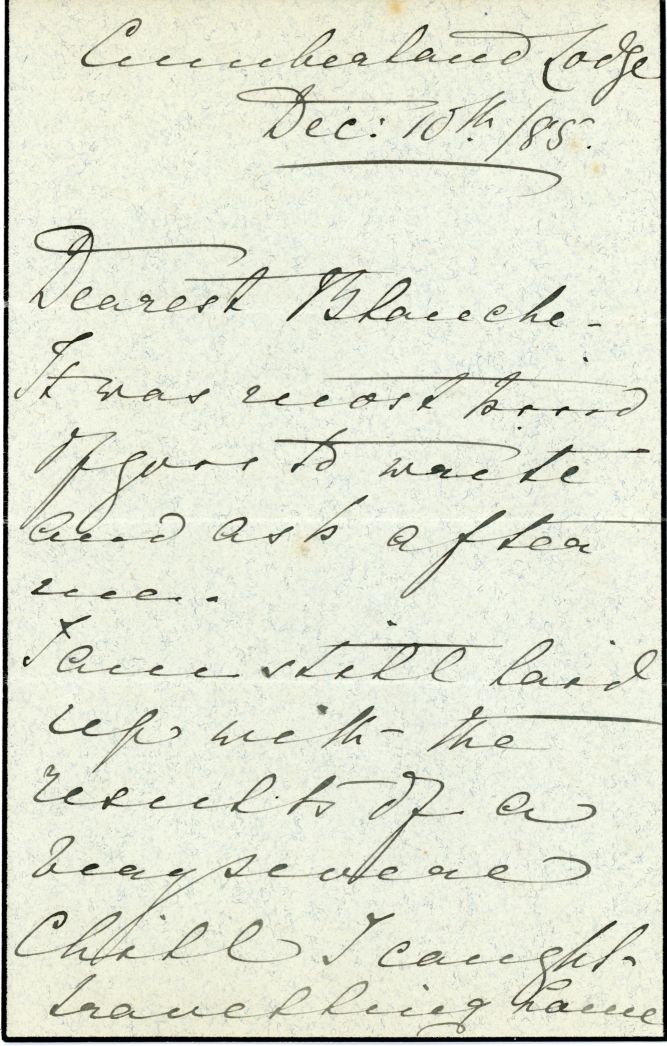 Cumberland Lodge
Dec: 10th. /85.
Dearest Blanche -
It was most kind
of you to write
and ask after
me.
I am still laid
up with the
results of a
very severe
chill I caught
travelling home